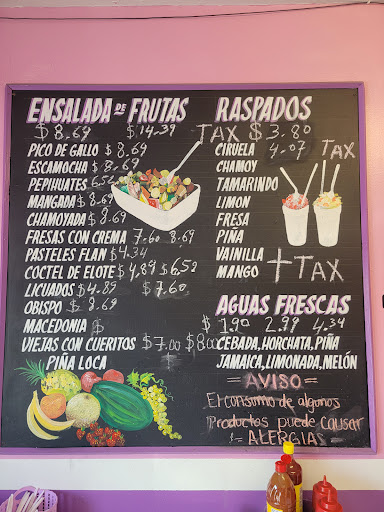 ENSALADA DE FRUTAS
$8.69 $14.39 TAX
PICO DE GALLO $8.69
ESCAMOCHA $8.69
PEPIHUATES 6.52
MANGADA $8.69
CHAMOYADA $8.69
FRESAS CON CREMA 7.60 8.69
PASTELES FLAN $4.34
COCTEL DE ELOTE $4.89 $6.52
LICUADOS $4.89 $7.60
OBISPO $8.69
MACEDONIA $
VIEJAS CON CUERITOS $7.00 $8.00
PIÑA LOCA
RASPADOS
$3.80
CIRUELA 4.07 TAX
CHAMOY
TAMARINDO
LIMON
FRESA
PIÑA
VAINILLA
MANGO + TAX
AGUAS FRESCAS
$1.90 2.99 4.34
CEBADA, HORCHATA, PIÑA
JAMAICA, LIMONADA, MELÓN
=AVISO=
El consumo de algunos
Productos puede causar
!- ALERGIAS -